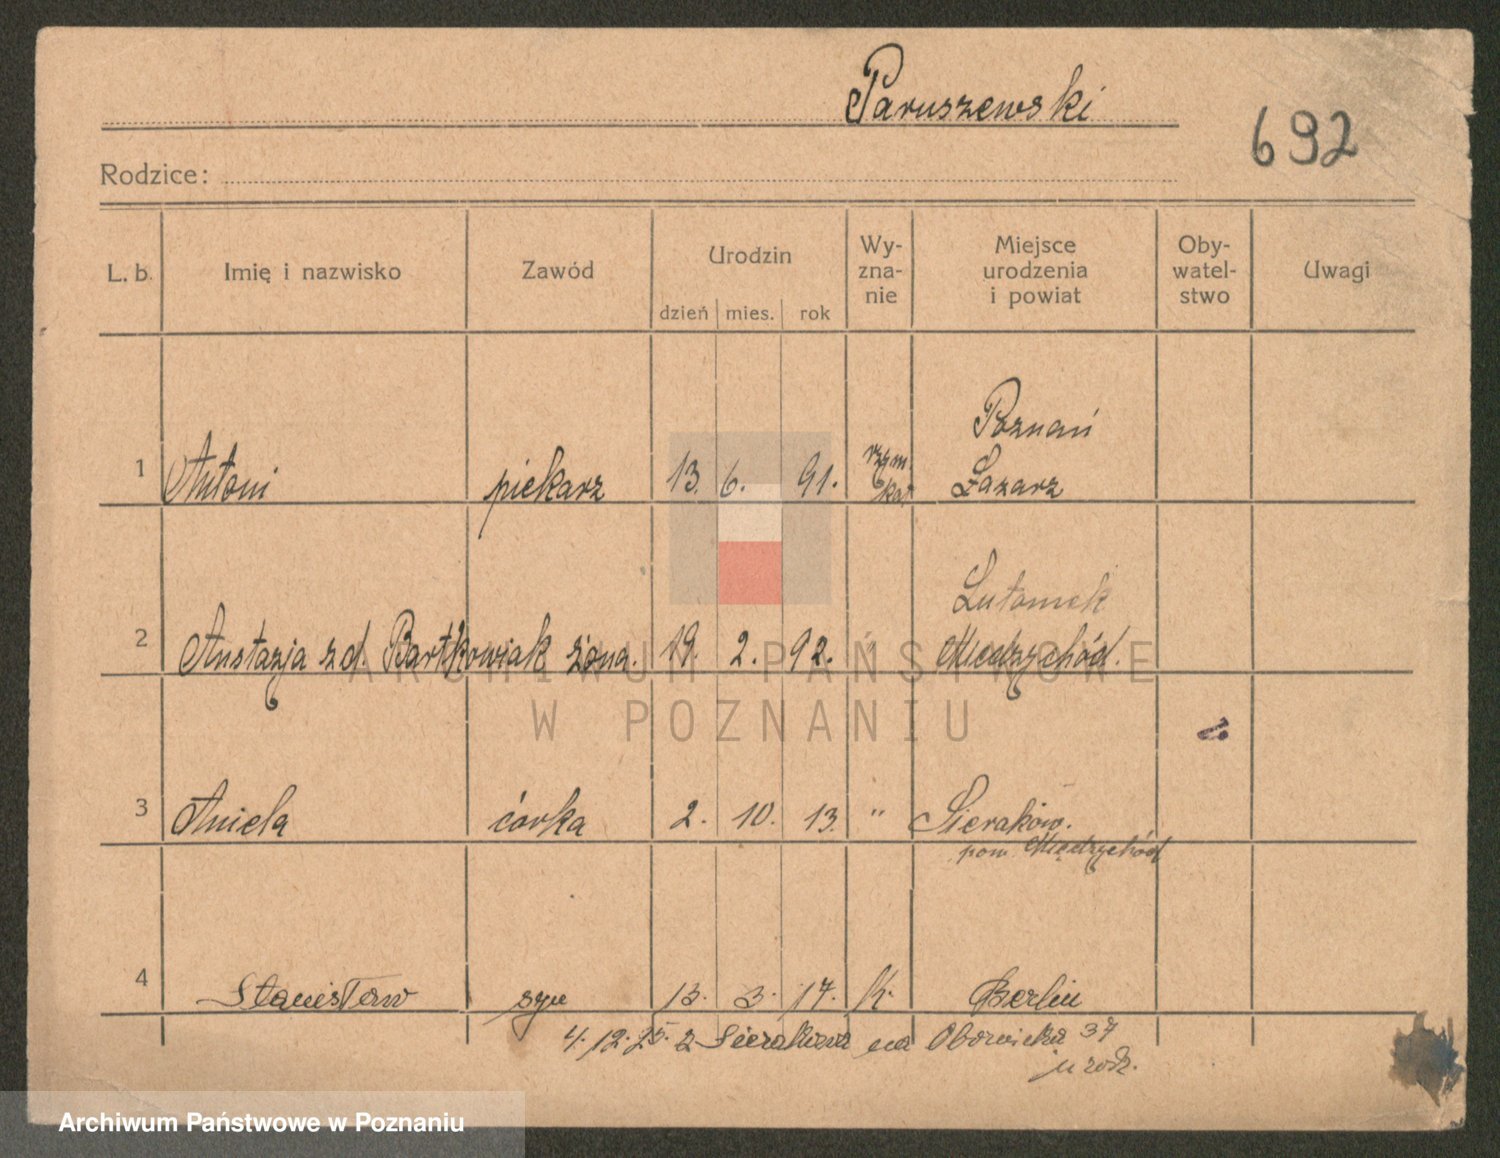 Paruszewski
692
Rodzice:
L. b. Imię i nazwisko Zawód Urodzin dzień mies. rok Wy-zna-nie Miejsce urodzenia i powiat Oby-watel-stwo Uwagi
Poznań
1 Antoni piekarz 13. 6. 91. rzym. kat Łazarz
Lutomek
2 Anstazja z d. Bartkowiak żona. 19. 2. 92. " Miedzychód.
3 Aniela córka 2. 10. 13. " Sieraków.
pow. Międzychód
4 Stanisław syn 13. 3. 17. K. Berlin
4. 12. 25. z Sierakowa na Obornicka 37
u rodz.
ARCHIWUM PAŃSTWOWE
W POZNANIU
Archiwum Państwowe w Poznaniu